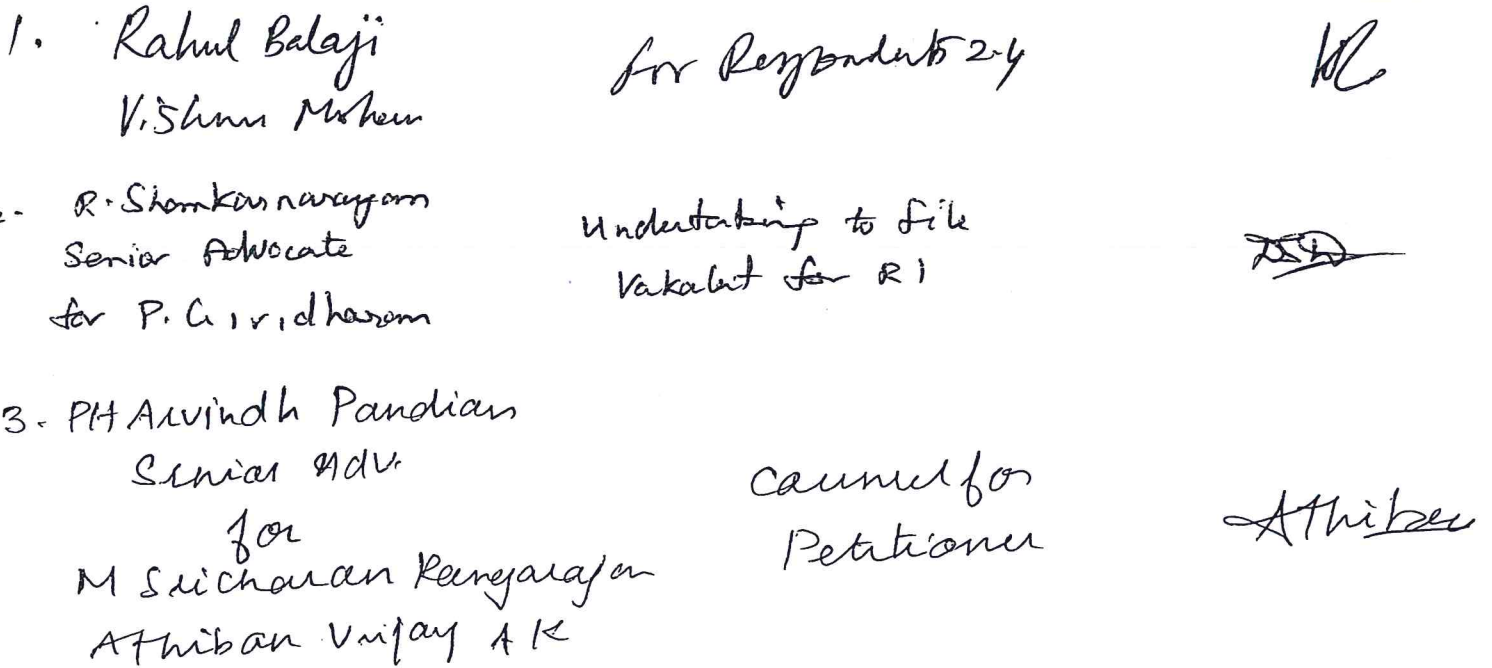 1. Rahul Balaji
Vishnu Mohan
for Respondents 2-4
R. Shankarnarayan
Senior Advocate
for P. Giridharan
Undertaking to file
Vakalat for R1
3. PH Arvindh Pandian
Senior Adv.
for
M Sricharan Rangarajan
Athiban Vijay A K
Counsel for
Petitioner
Athiban